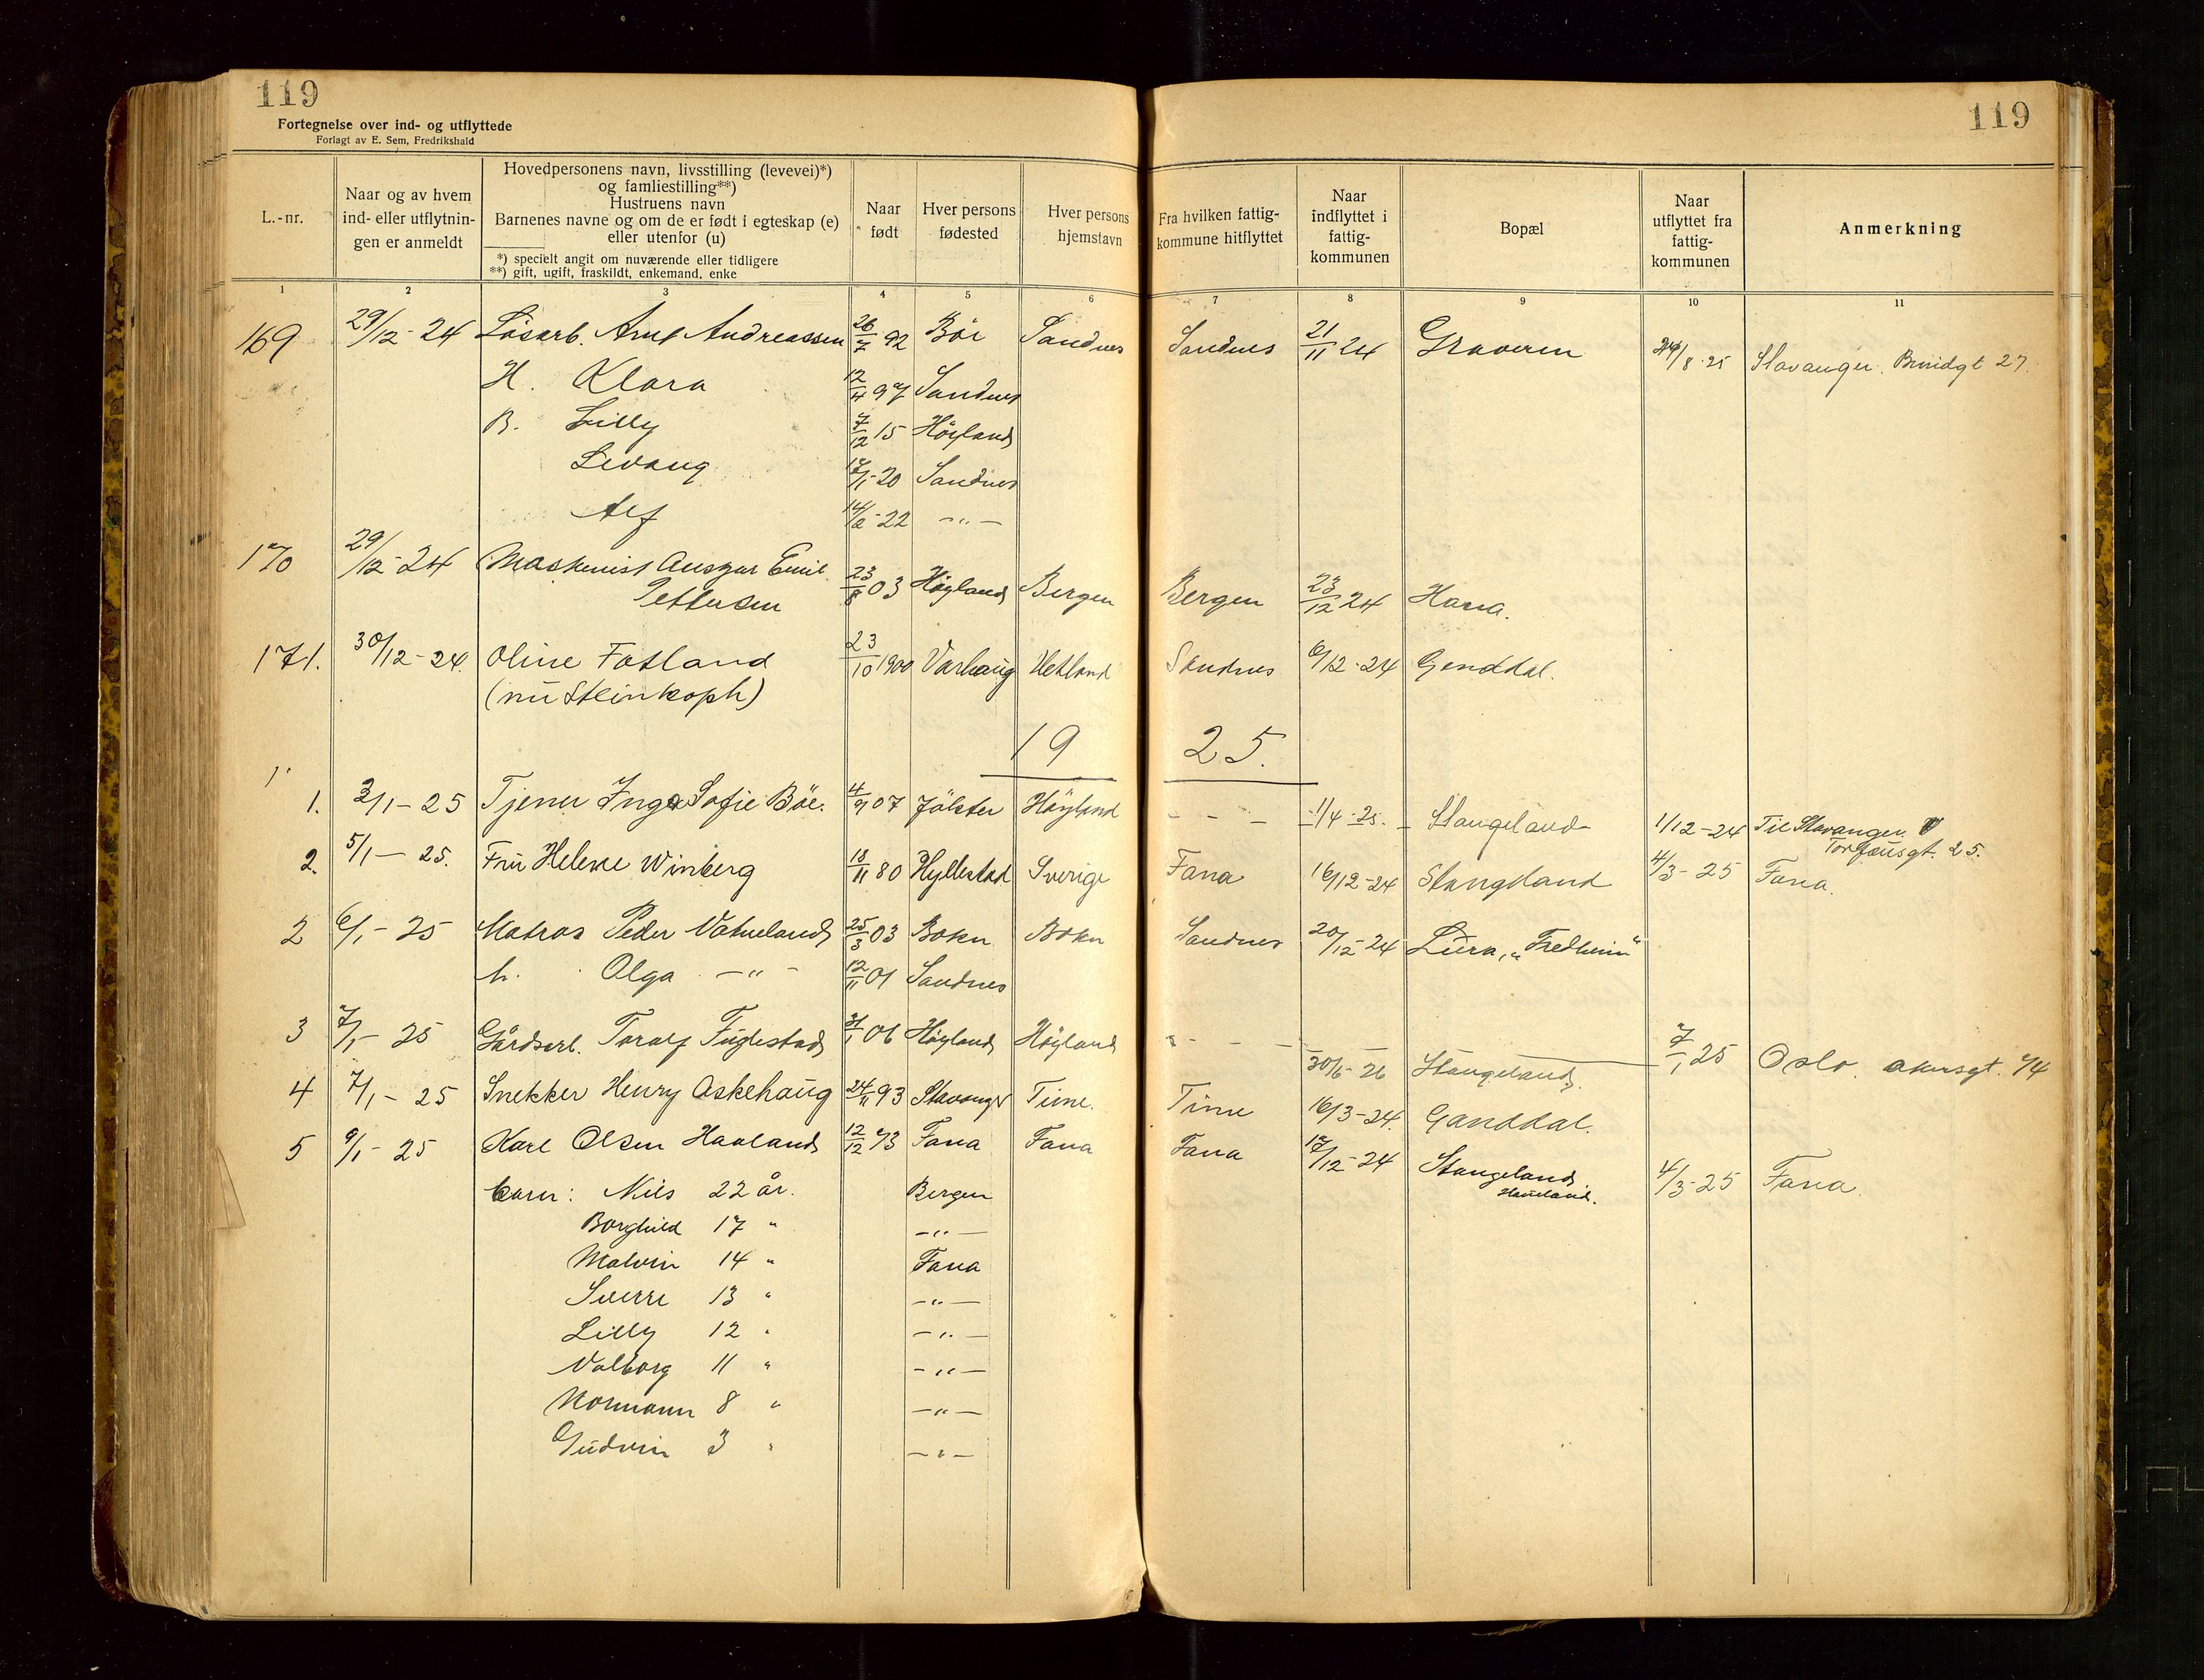 119
119
Fortegnelse over ind- og utflyttede
Forlagt av E. Sem, Fredrikshald
L.-nr.
Naar og av hvem
ind- eller utflytnin-
gen er anmeldt
Hovedpersonens navn, livsstilling (levevei)*)
og famliestilling**)
Hustruens navn
Barnenes navne og om de er født i egteskap (e)
eller utenfor (u)
*) specielt angit om nuværende eller tidligere
**) gift, ugift, fraskildt, enkemand, enke
Naar
født
Hver persons
fødested
Hver persons
hjemstavn
Fra hvilken fattig-
kommune hitflyttet
Naar
indflyttet i
fattig-
kommunen
Bopæl
Naar
utflyttet fra
fattig-
kommunen
Anmerkning
1 2 3 4 5 6 7 8 9 10 11
169 29/12-24 Løsarb. Arnt Andreassen 26/7 92 Bör Sandnes Sandnes 21/11 24 Graveren /8-25 Stavanger. 27.
H. Klara 12/4 97 Sandnes
B. Lilly 7/12 15 Höyland
Levaug 17/1-20 Sandnes
Alf 14/2-22 -"-
170 29/12-24 Maskinist Ansgar Emil
Pettersen 23/8 03 Höyland Bergen Bergen 23/12 24 Hana.
171. 30/12-24. Oline Fatland 23/10 1900 Varhaug Hetland Sandnes 6/12-24 Ganddal.
(nu Steinkoph)
19 25.
1. 3/1-25 Tjener Inga Sofie Böe. 4/9 07 Jölster Höyland - - - 1/4-25. Stangeland 1/12-24 Til Stavanger
Torfæusgt. 25.
2. 5/1-25. Fru Helene Winberg 18/11 80 Hyllestad Sverige Fana 16/12-24 Stangeland 4/3-25 Fana.
2 6/1-25 Matros Peder Vatneland 25/3 03 Bokn Bokn Sandnes 20/12-24 Lura, "Fredheim"
h. Olga -"- 12/11 01 Sandnes
3 7/1-25 Gårdsarb. Toralf Fuglestad /1 06 Höyland Höyland - - - 30/6-26 Stangeland. 7/1 25 Oslo. Akersgt. 74
4 7/1-25 Snekker Henry Askehaug 24/11 93 Stavanger Time. Time 16/3-24. Ganddal.
5 9/1-25 Karl Olsen Haaland 12/12 73 Fana Fana Fana 17/12-24 Stangeland. 4/3-25 Fana.
Haueland.
barn: Nils 22 år. Bergen
Borghild 17 " -"-
Malvin 14 " Fana
Sverre 13 " -"-
Lilly 12 " -"-
Valborg 11 " -"-
Normann 8 " -"-
Gudvin 3 " -"-